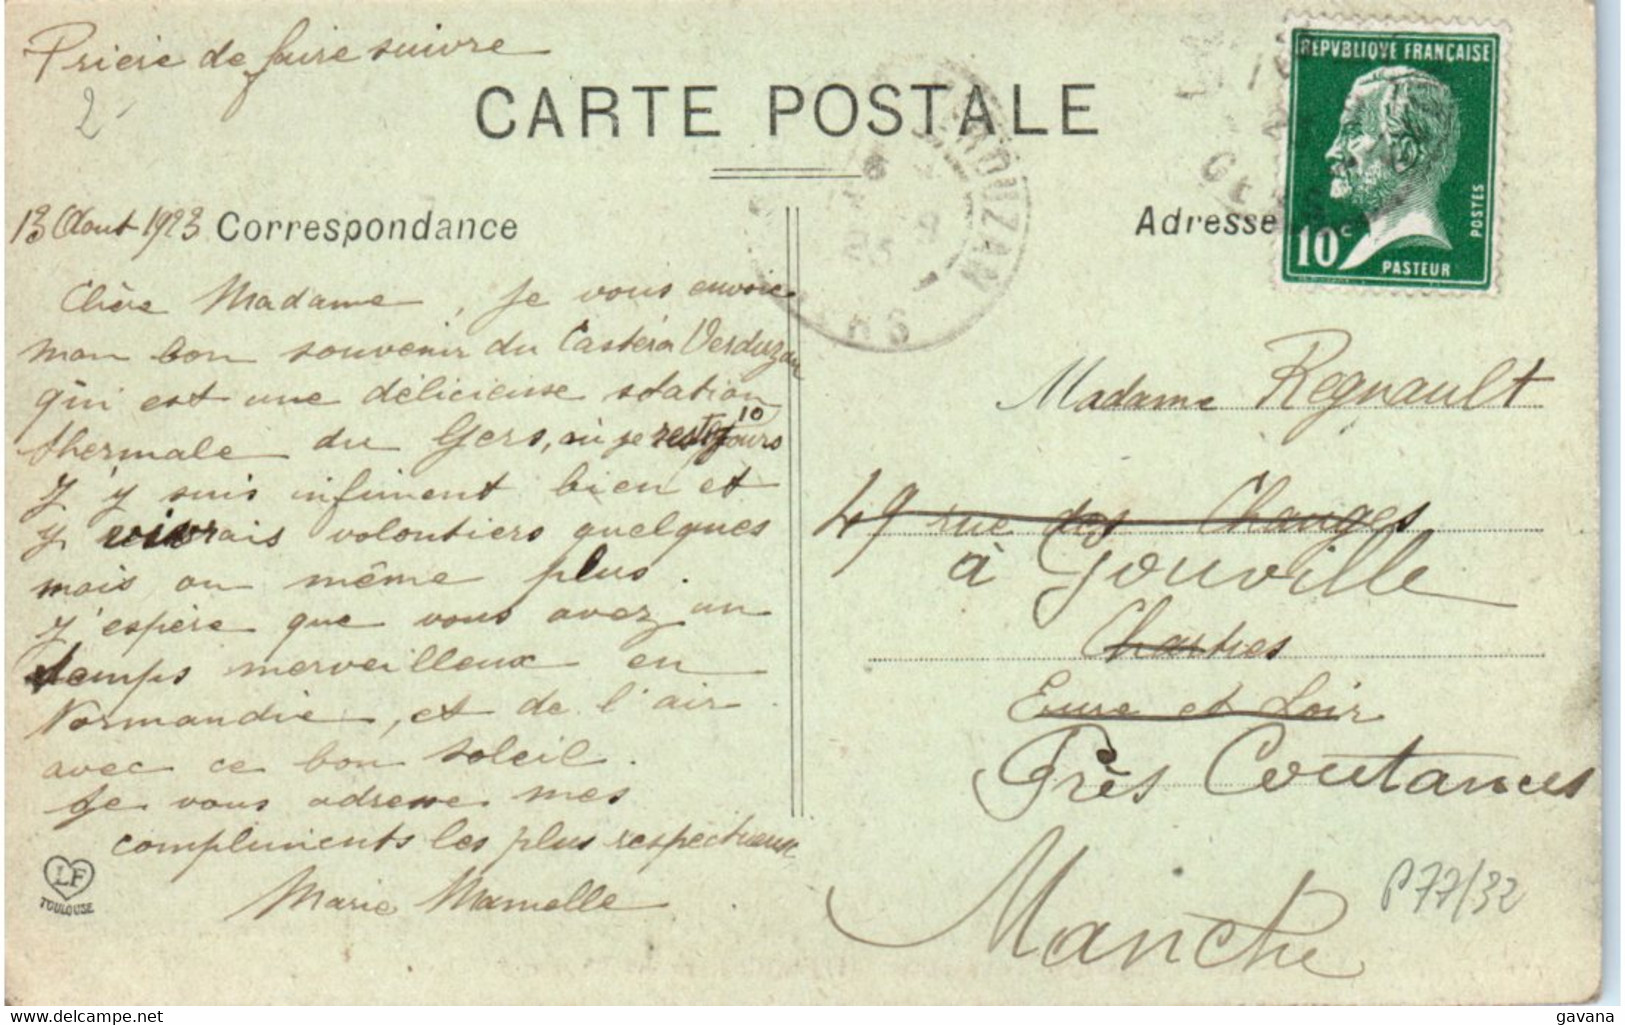 Prière de faire suivre
2-
CARTE POSTALE
13 Aout 1923
Correspondance
Adresse
REPVBLIQVE FRANÇAISE
POSTES
10c
PASTEUR
VERDUZAN
GERS
Chère Madame, je vous envoie
mon bon souvenir du Castéra Verduzan
qui est une délicieuse station
thermale du Gers, où je reste 10 jours
J'y suis infiniment bien et
y vivrais volontiers quelques
mois ou même plus.
J'espère que vous avez un
temps merveilleux en
Normandie, et de l'air
avec ce bon soleil.
Je vous adresse mes
compliments les plus respectueux
Marie Mamelle
LF
TOULOUSE
Madame Regnault
49 rue des Changes
à Gouville
Chartres
Eure et Loir
Près Coutances
Manche
P77/32
gavana